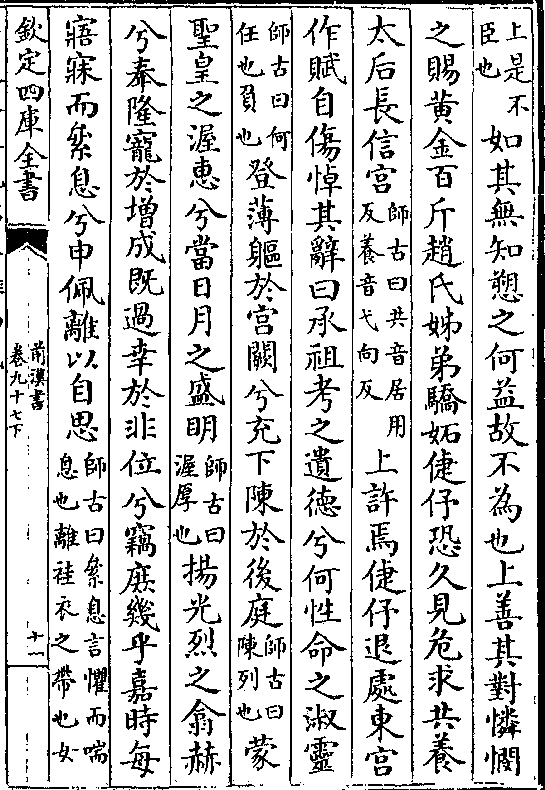 上是不
臣也
如其無知愬之何益故不為也上善其對憐憫
之賜黄金百斤趙氏姊弟驕妬倢伃恐久見危求共養
太后長信宫
師古曰共音居用
反養音弋向反
上許焉倢伃退處東宫
作賦自傷悼其辭曰承祖考之遺德兮何性命之淑靈
師古曰何
任也負也
登薄軀於宫闕兮充下陳於後庭
師古曰
陳列也
蒙
聖皇之渥惠兮當日月之盛明
師古曰
渥厚也
揚光烈之翕赫
兮奉隆寵於増成既過幸於非位兮竊庶幾乎嘉時每
寤寐而絫息兮申佩離以自思
師古曰絫息言懼而喘
息也離袿衣之帶也女
欽定四庫全書
前漢書
卷九十七下
十一